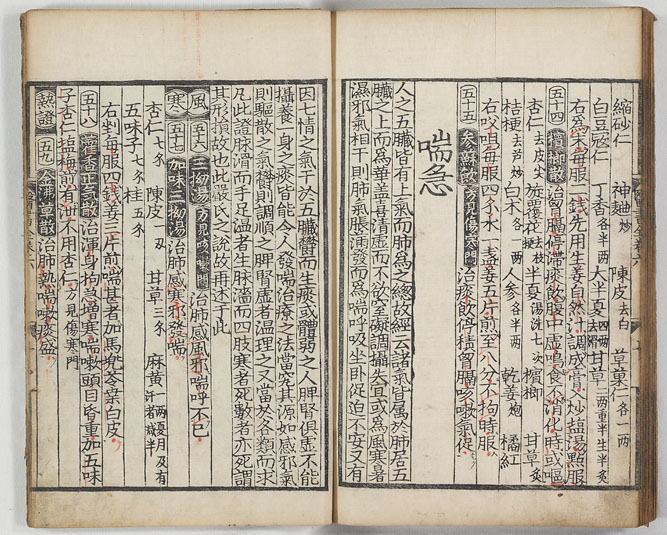 縮砂仁 神麯炒 陳皮去白 草菓仁各一兩
白豆寇仁 丁香各半兩 大半夏四兩 甘草二兩重半生半炙
右爲末每服一錢先用生姜自然汁調成膏入炒塩湯點服
五十四 檳榔散 治胷膈停滯痰飮腹中虛鳴食不消化時或嘔
杏仁去皮尖 旋覆花去枝 半夏湯洗七次 檳榔 甘草炙
桔梗去芦炒 白木各一兩 人參各半兩 乾姜炮 橘紅
右㕮咀每服四錢水一盞姜五片煎至八分不拘時服
五十五 參蘇飮方見傷寒門 治痰飮停積胷膈咳嗽氣促
喘急
人之五臟皆有上氣而肺爲之總故經云諸氣皆屬於肺居五
臟之上而爲華盖喜清虛而不欲窒礙調攝失宜或爲風寒暑
濕邪氣相干則肺氣脹滿發而爲喘呼吸坐臥促迫不安又有
因七情之氣干於五臟欝而生痰或體弱之人脾腎俱虛不能
攝養一身之痰皆能令人發喘治療之法當究其源如感邪氣
則驅散之氣欝則調順之脾腎虛者温理之又當於各類而求
凡此證脉滑而手足温者生脉濇而四肢寒者死數者亦死謂
其形損故也此嚴氏之說故再述于此
風 五十六 三拗湯方見咳嗽門 治肺感風邪喘呼不已
寒 五十七 加味三拗湯 治肺感寒邪發喘
杏仁七㕝 陳皮 甘草三㕝 麻黃一兩夏月及有汗者減半
五味子七㕝 桂五㕝
右剉每服四錢姜三片煎喘甚者加馬兜苓桒白皮
五十八 藿香正氣散 治渾身拘急增寒喘嗽頭目昏重加五味
子杏仁塩梅若有泄不用杏仁方見傷寒門
熱證 五十九 散治肺熱喘嗽痰盛